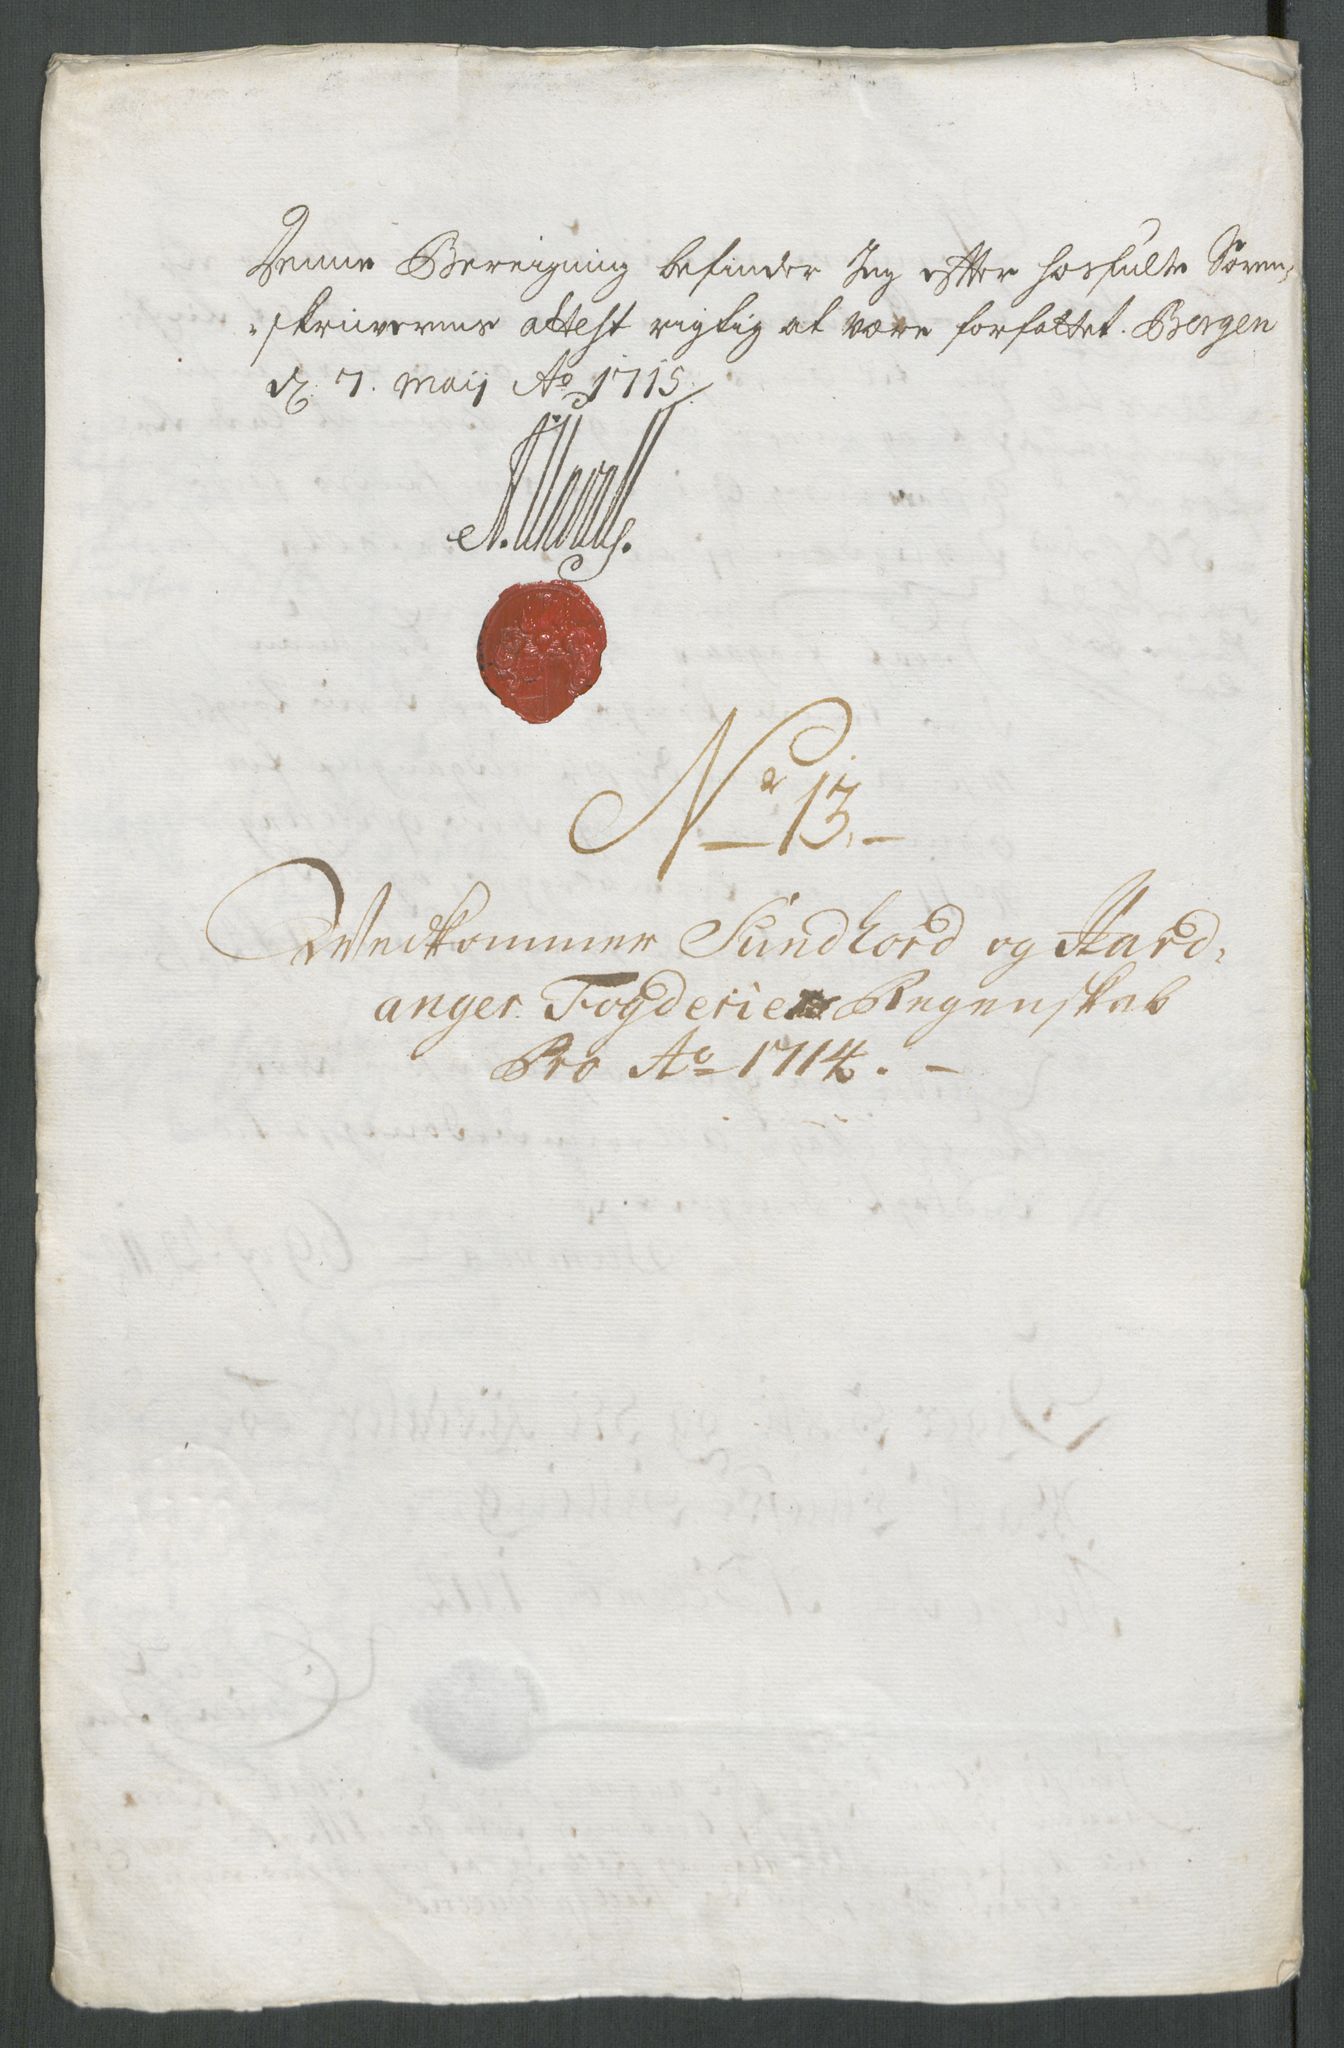 Denne Bereigning befinder Jeg efter hosfulte Soren-
skriiverens attest rigtig at være forfattet. Bergen
d. 7. Maij Ao 1715.
No 13.
Vedkommer Sundhord og Hard,
anger Fogderies Regenskab
Pro Ao 1714.